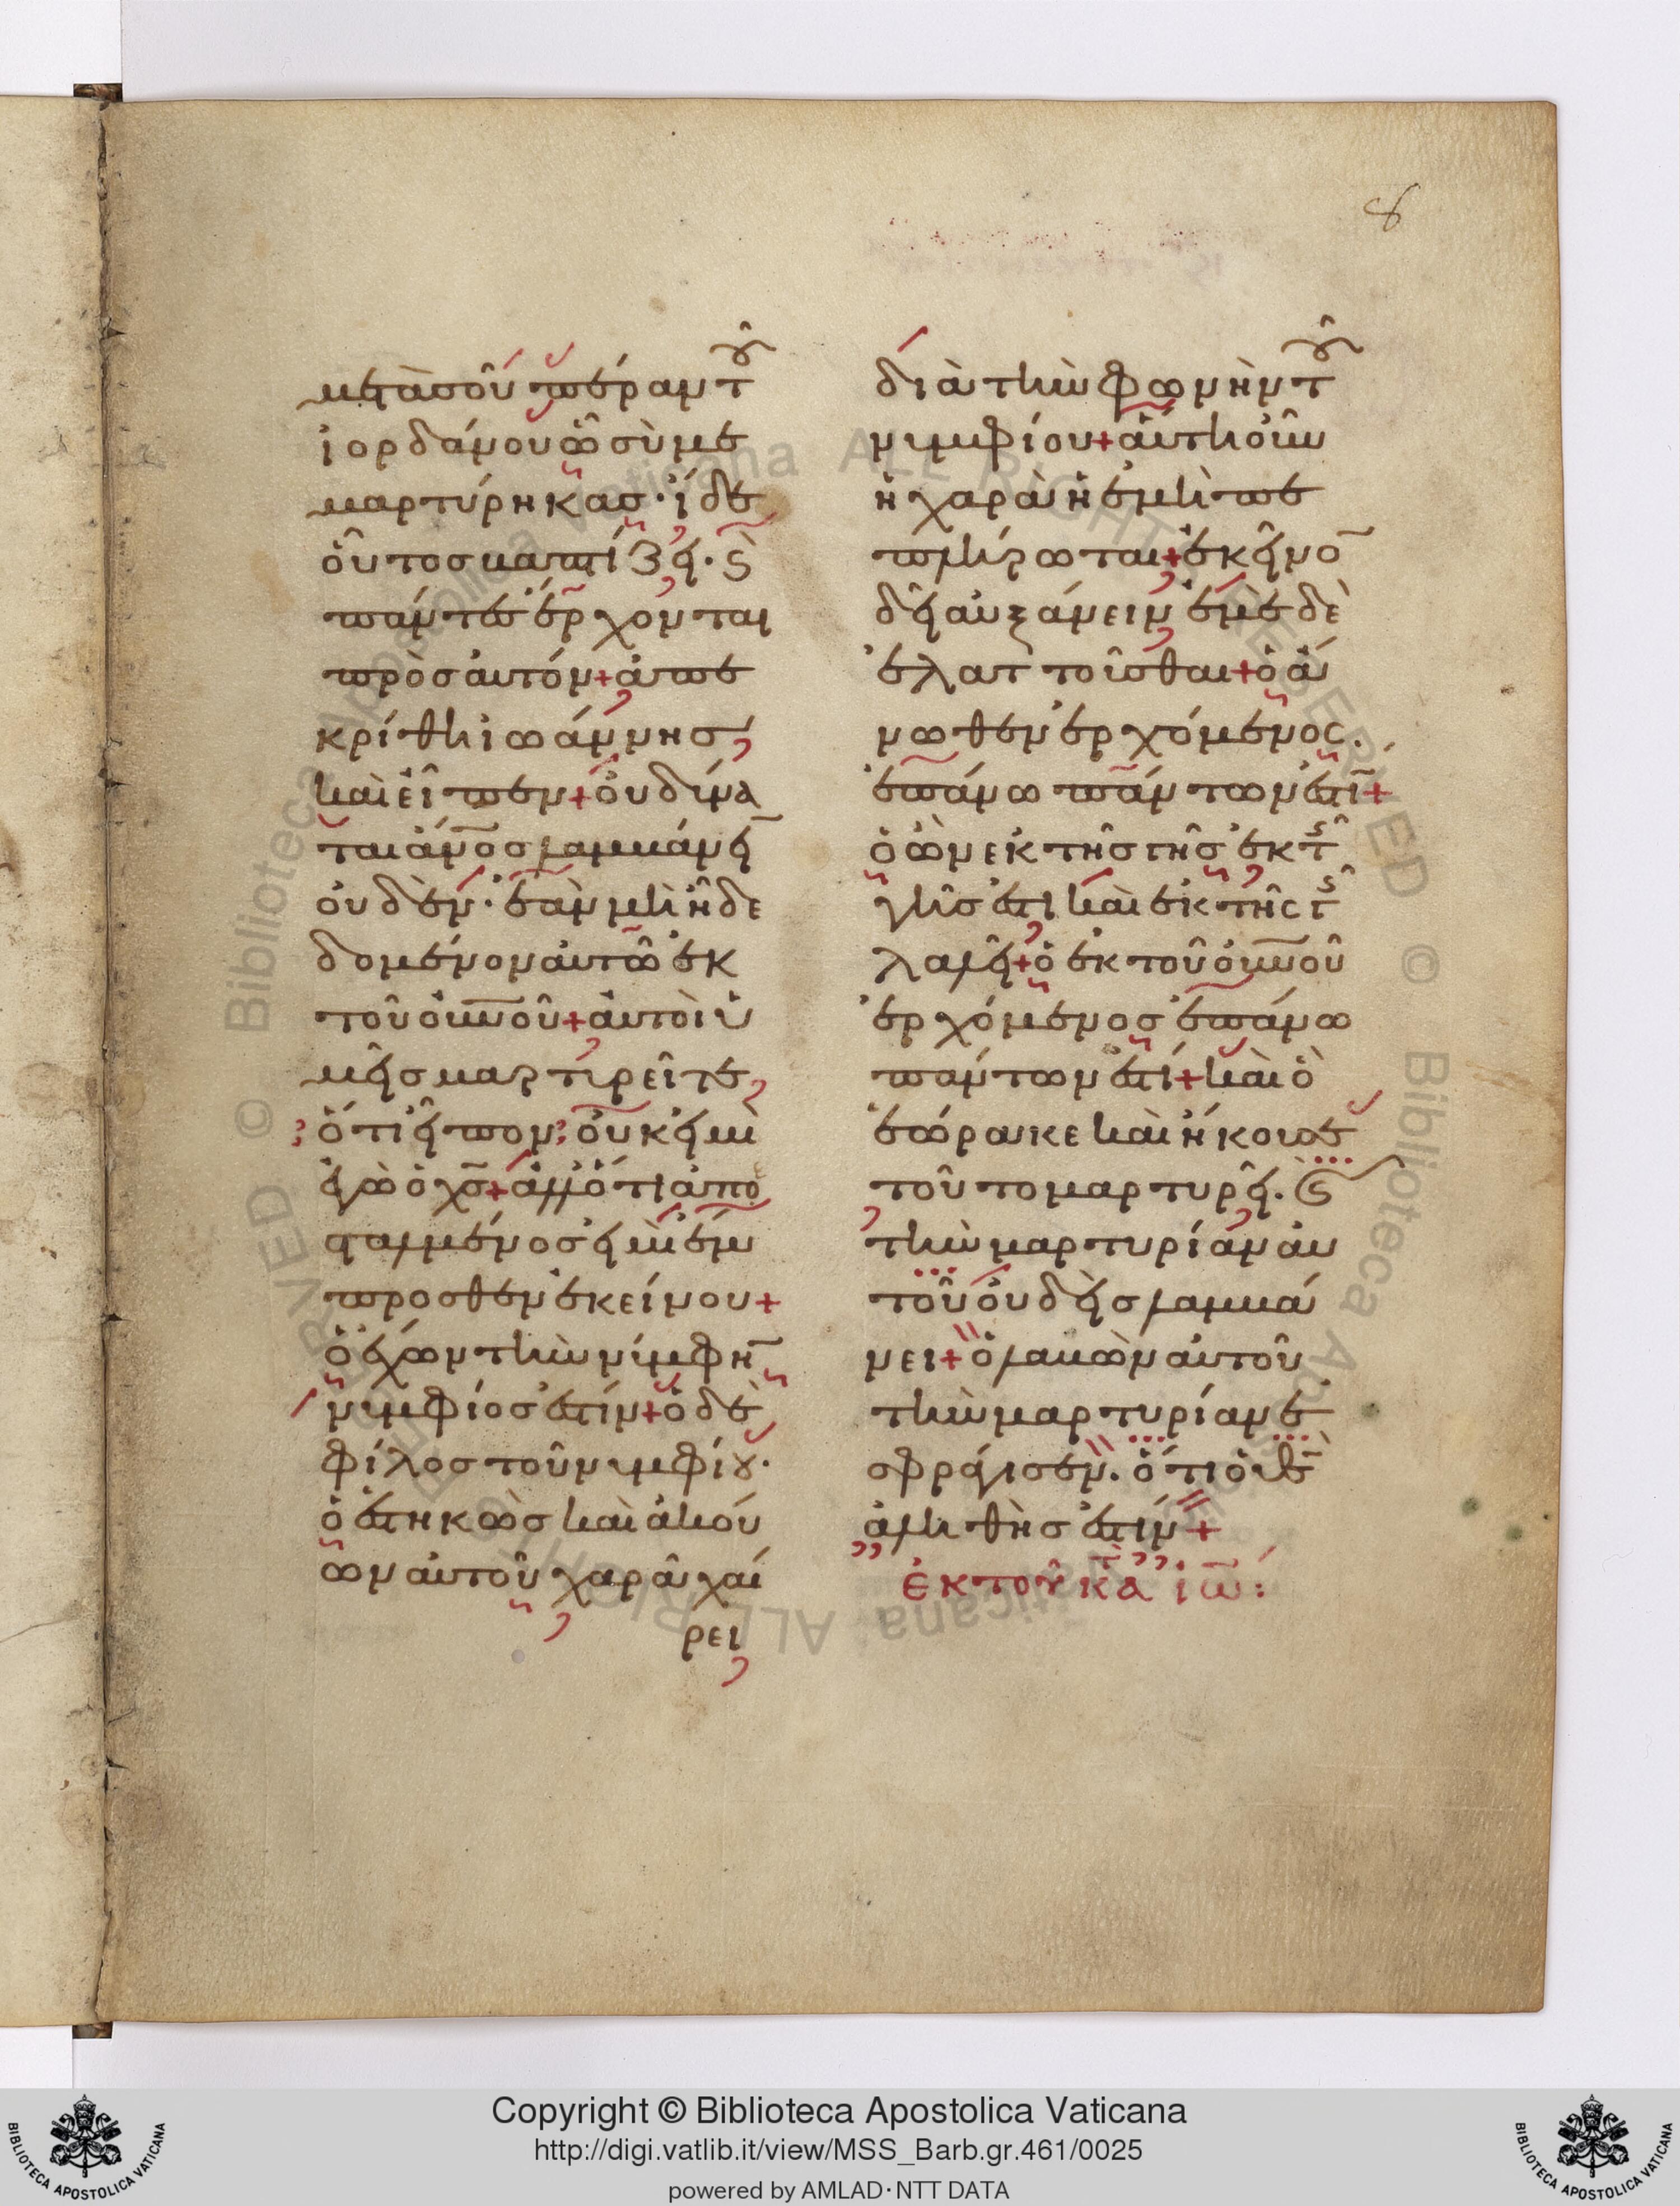 8
μετὰ σοῦ πέραν τοῦ
ἰορδάνου ὧ σὺ με
μαρτύρηκας· ἴδε
οὗτος βαπτίζει· καὶ
πάντες ἔρχονται
πρὸς αὐτόν+ ἀπε
κρίθη ἰωάννης
καὶ εἶπεν+ οὐ δύνα
ται ἄνος λαμβάνειν
οὐδὲν· ἐὰν μὴ ἦ δε
δομένον αὐτῶ ἐκ
τοῦ οὐνοῦ+ αὐτοὶ ὑ
μεῖς μαρτυρεῖτε
ὅτι εἶπον· οὐκ εἰμὶ
ἐγὼ ὁ χς+ ἀλλ' ὅτι ἀπε
σταλμένος εἰμὶ ἔμ
προσθεν ἐκείνου+
ὁ ἔχων τὴν νύμφην
νυμφίος ἐστίν+ ὁ δὲ
φίλος τοῦ νυμφίου·
ὁ ἑστηκὼς καὶ ἀκού
ων αὐτοῦ χαρᾶ χαί
ρει
διὰ τὴν φωνὴν τοῦ
νυμφίου+ αὕτη οὖν
ἡ χαρὰ ἡ ἐμὴ πε
πλήρωται+ ἐκεῖνον
δεῖ αὐξάνειν ἐμὲ δὲ
ἐλαττοῦσθαι+ ὁ ἄ
νωθεν ἐρχόμενος.
ἐπάνω πάντων ἐστί+
ὁ ὢν ἐκ τῆς γῆς ἐκ τῆς
γῆς ἐστι καὶ ἐκ τῆς γῆς
λαλεῖ+ ὁ ἐκ τοῦ οὐνοῦ
ἐρχόμενος ἐπάνω
πάντων ἐστί+ καὶ ὃ
ἑώρακε καὶ ἤκουσε
τοῦτο μαρτυρεῖ. καὶ
τὴν μαρτυρίαν αὐ
τοῦ οὐδεὶς λαμβά
νει+ ὁ λαβὼν αὐτοῦ
τὴν μαρτυρίαν ἐ
σφράγισεν. ὅτι ὁ θς
ἀληθής ἐστιν+
ἐκ τοῦ κτα ἰω:
Copyright © Biblioteca Apostolica Vaticana
http://digi.vatlib.it/view/MSS_Barb.gr.461/0025
powered by AMLAD·NTT DATA